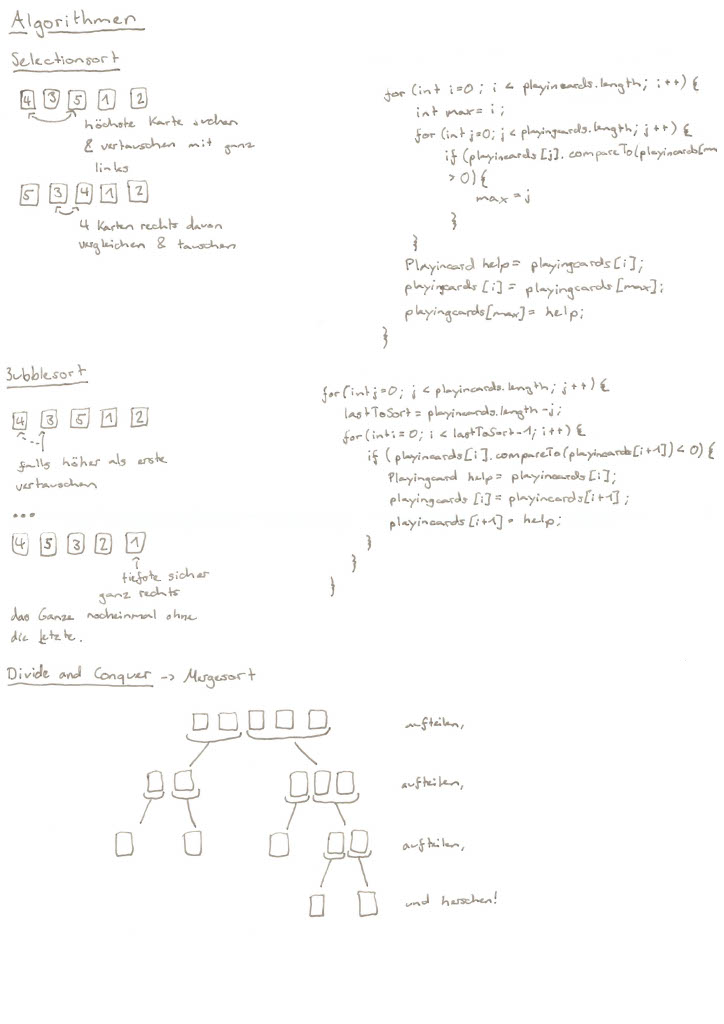 Algorithmen
Selectionsort
4 3 5 1 2
höchste Karte suchen
& vertauschen mit ganz
links
5 3 4 1 2
4 Karten rechts davon
vergleichen & tauschen
for (int i=0; i < playincards.length; i++) {
int max = i;
for (int j=0; j < playingcards.length; j++) {
if (playincards[j].compareTo(playincards[m
> 0) {
max = j
}
}
Playincard help = playingcards[i];
playingcards[i] = playingcards[max];
playingcards[max] = help;
}
Bubblesort
4 3 5 1 2
falls höher als erste
vertauschen
...
4 5 3 2 1
tiefste sicher
ganz rechts
das Ganze nocheinmal ohne
die letzte.
for (int j=0; j < playincards.length; j++) {
lastToSort = playincards.length-j;
for (int i=0; i < lastToSort-1; i++) {
if (playincards[i].compareTo(playincards[i+1]) < 0) {
Playingcard help = playincards[i];
playingcards[i] = playincards[i+1];
playincards[i+1] = help;
}
}
}
Divide and Conquer -> Mergesort
aufteilen,
aufteilen,
aufteilen,
und herschen!